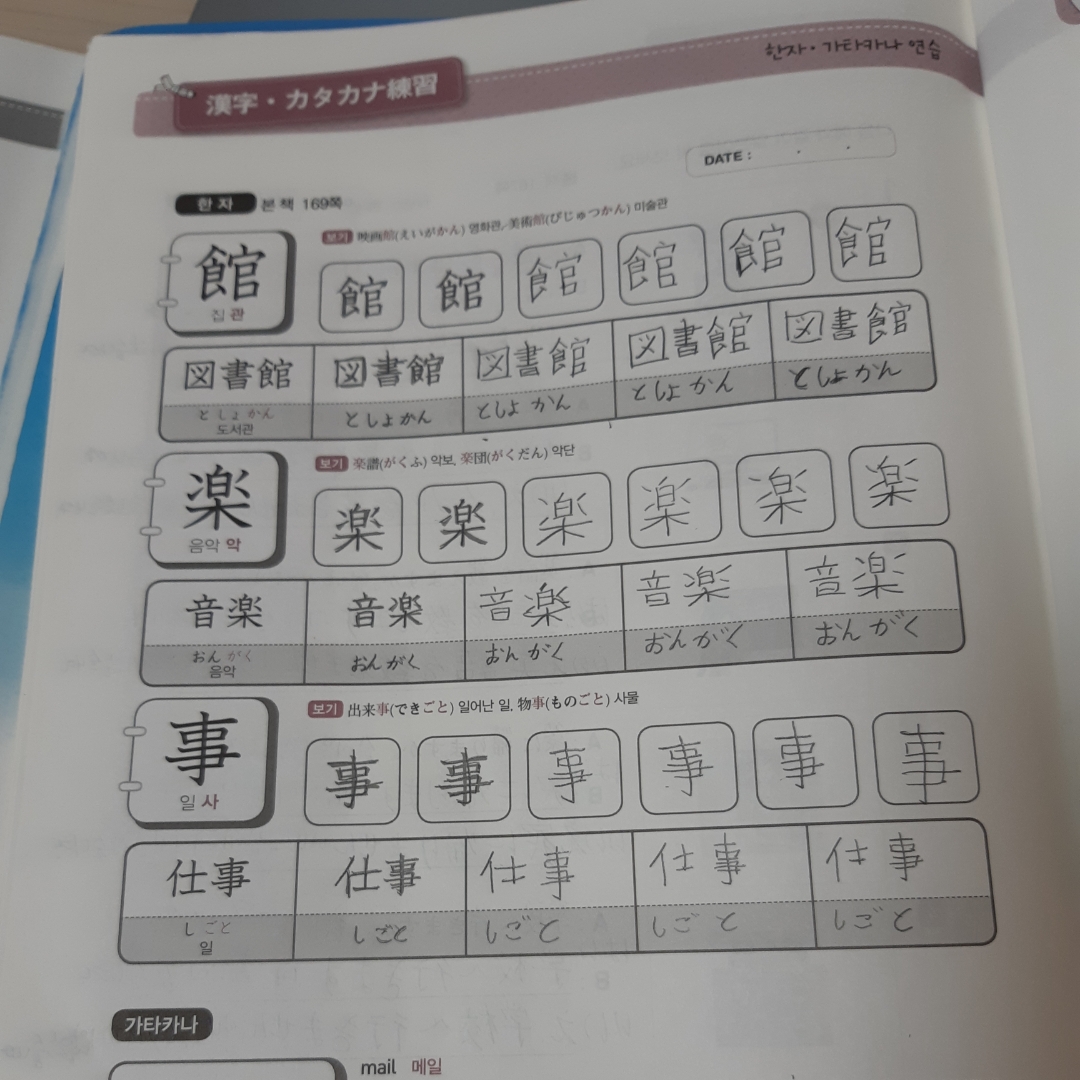 漢字・カタカナ練習
한자・가타카나 연습
DATE : . .
한자 본책 169쪽
보기 映画館(えいがかん) 영화관, 美術館(びじゅつかん) 미술관
館 집 관
館 館 館 館 館 館
図書館 図書館 図書館 図書館 図書館
としょかん としょかん としょかん としょかん としょかん
도서관
보기 楽譜(がくふ) 악보, 楽団(がくだん) 악단
楽 음악 악
楽 楽 楽 楽 楽 楽
音楽 音楽 音楽 音楽 音楽
おんがく おんがく おんがく おんがく おんがく
음악
보기 出来事(できごと) 일어난 일, 物事(ものごと) 사물
事 일 사
事 事 事 事 事 事
仕事 仕事 仕事 仕事 仕事
しごと しごと しごと しごと しごと
일
가타카나
mail 메일